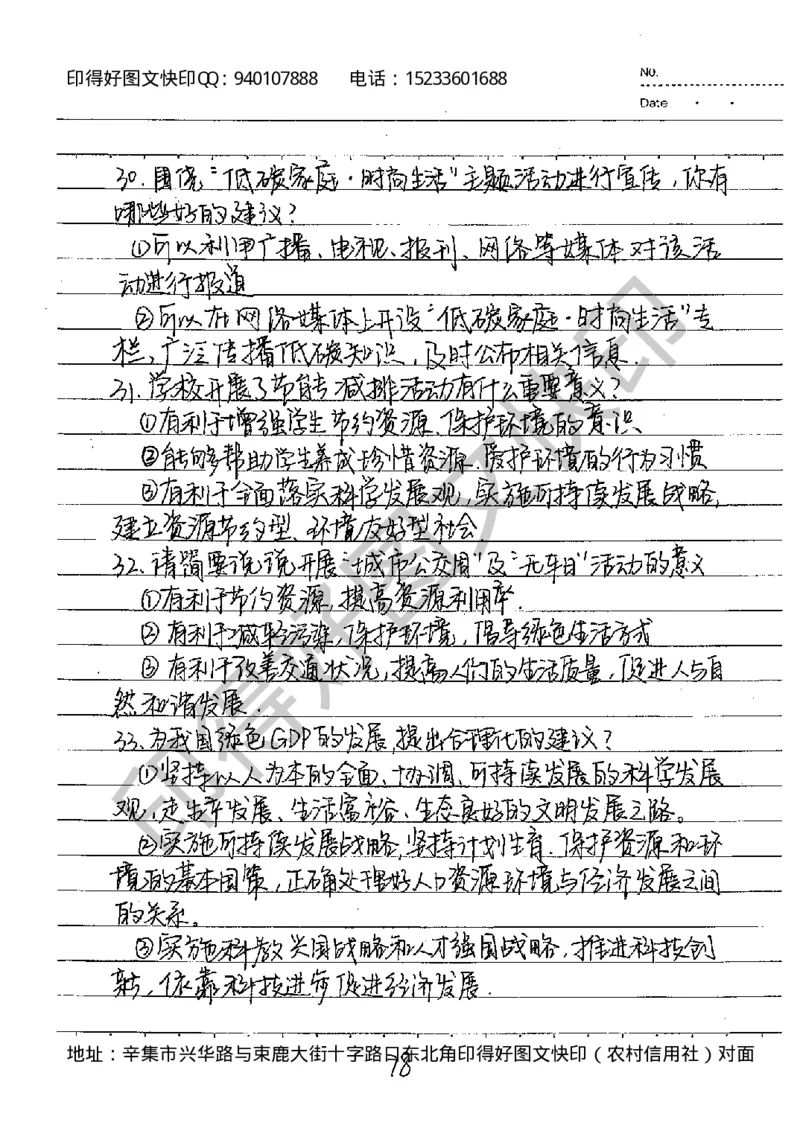 印得好图文快印QQ：940107888 电话：15233601688
No.
Date
30.围绕“低碳家庭·时尚生活”主题活动进行宣传，你有
哪些好的建议？
①可以利用广播、电视、报刊、网络等媒体对该活
动进行报道
②可以在网络媒体上开设“低碳家庭·时尚生活”专
栏，广泛传播低碳知识，及时公布相关信息.
31.学校开展了节能减排活动有什么重要意义？
①有利于增强学生节约资源、保护环境的意识
②能够帮助学生养成珍惜资源、爱护环境的行为习惯
③有利于全面落实科学发展观，实施可持续发展战略，
建立资源节约型、环境友好型社会
32.请简要说说开展“城市公交周”及“无车日”活动的意义
①有利于节约资源，提高资源利用率.
②有利于减轻污染，保护环境，倡导绿色生活方式
③有利于改善交通状况，提高人们的生活质量，促进人与自
然和谐发展.
33.为我国绿色GDP的发展，提出合理化的建议？
①坚持以人为本的全面、协调、可持续发展的科学发展
观，走生产发展、生活富裕、生态良好的文明发展之路。
②实施可持续发展战略，坚持计划生育、保护资源和环
境的基本国策，正确处理好人口资源环境与经济发展之间
的关系。
③实施科教兴国战略和人才强国战略，推进科技创
新，依靠科技进步促进经济发展.
地址：辛集市兴华路与束鹿大街十字路口东北角印得好图文快印（农村信用社）对面
78
印得好图文快印